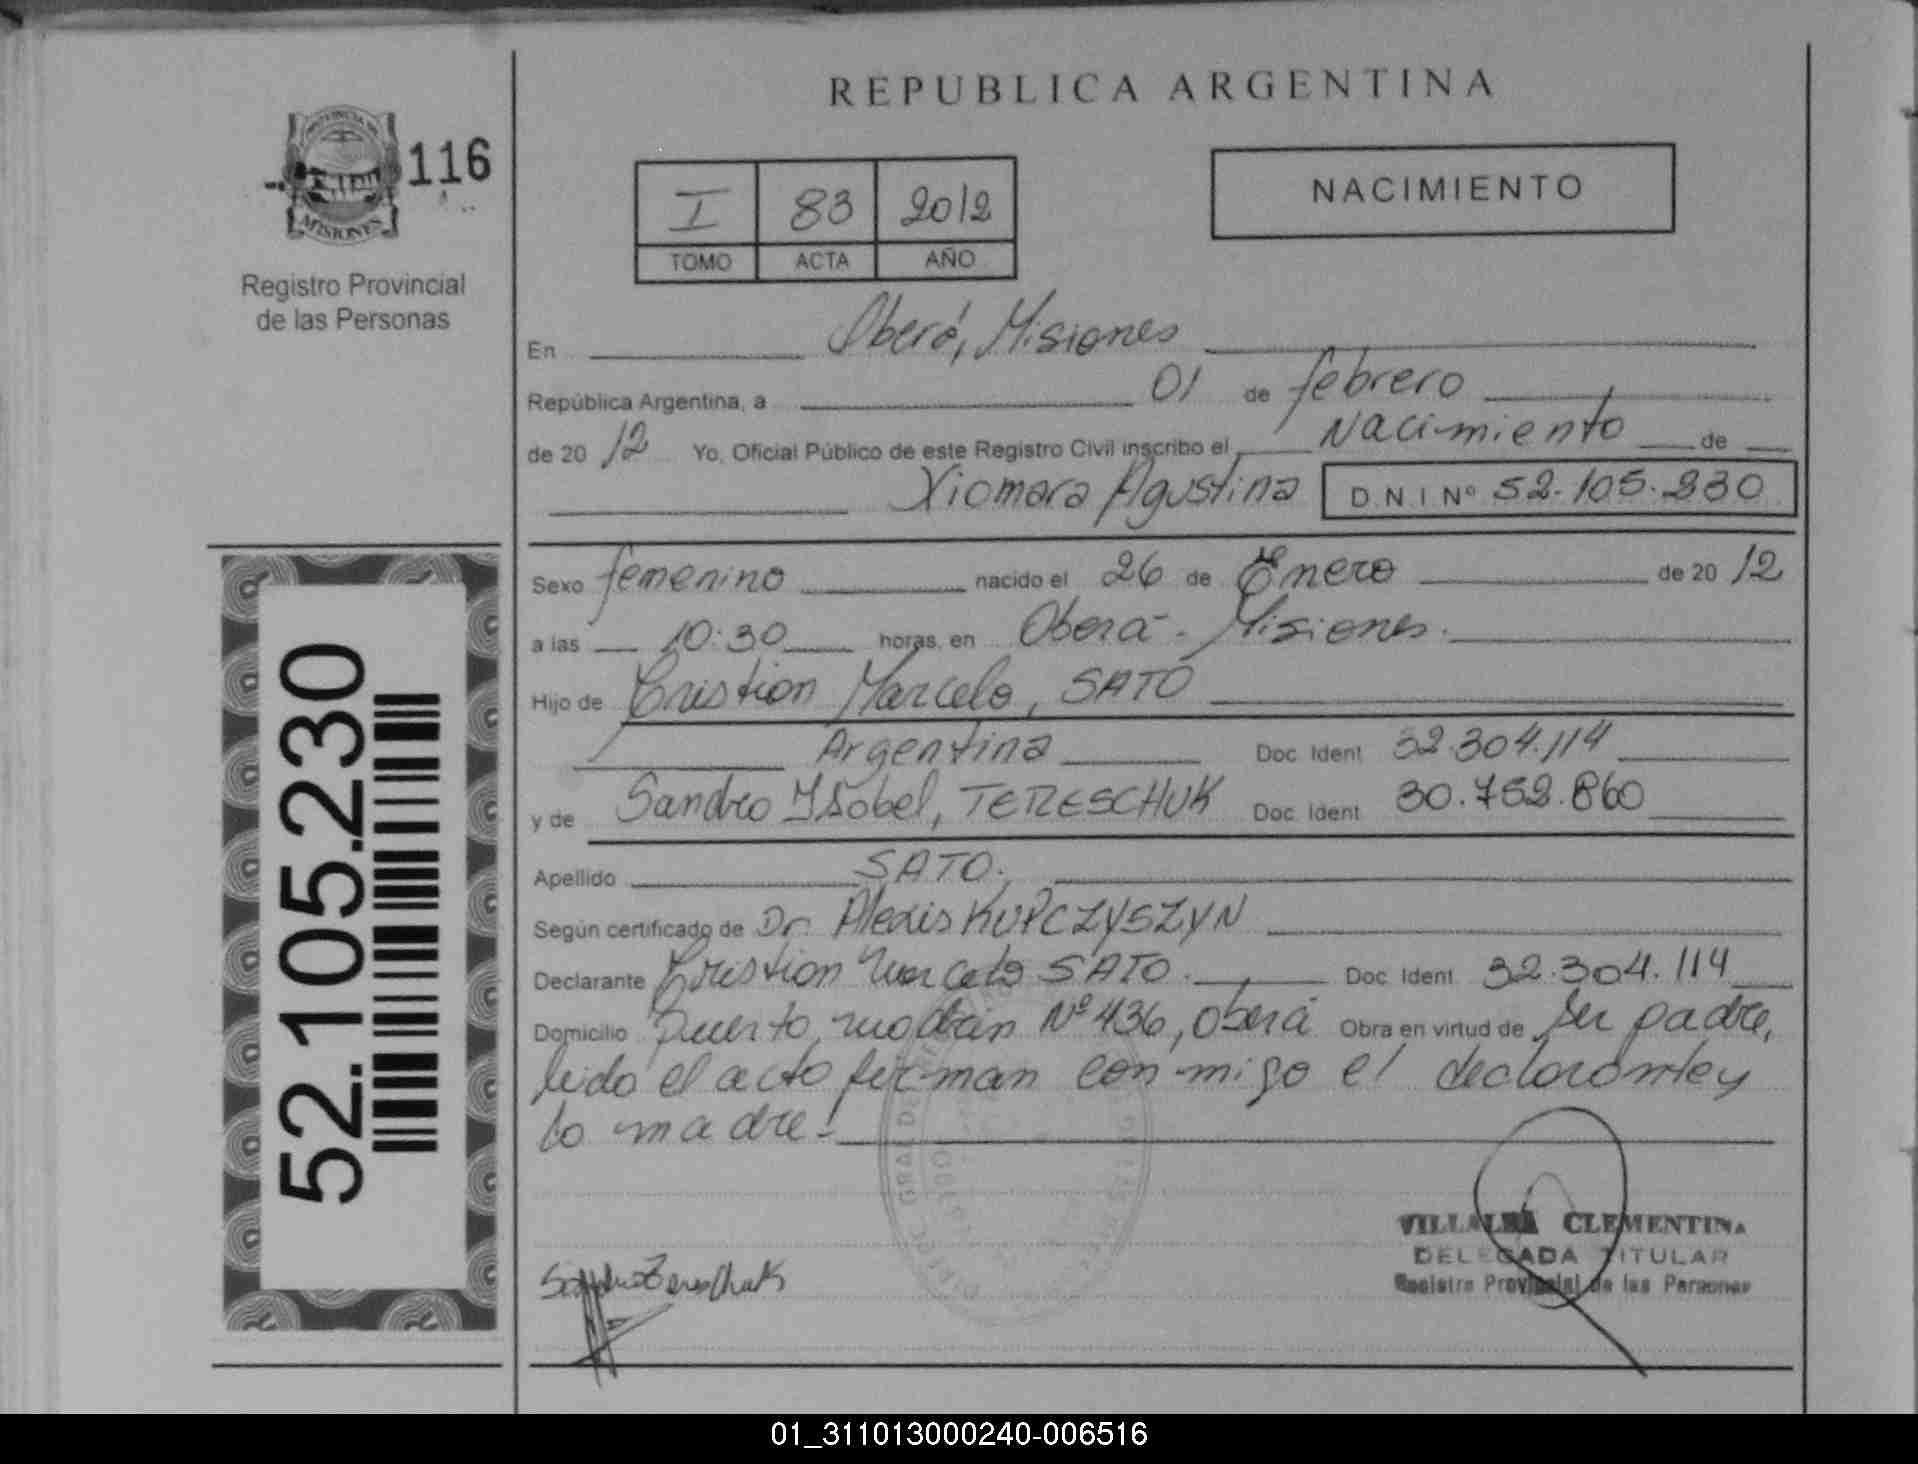 REPUBLICA ARGENTINA
PROVINCIA DE
MISIONES
116
Registro Provincial
de las Personas
I 83 2012
TOMO ACTA AÑO
NACIMIENTO
En Oberá, Misiones
República Argentina, a 01 de febrero
de 20 12 Yo, Oficial Público de este Registro Civil inscribo el Nacimiento de
Xiomara Agustina D.N.I. Nº 52.105.230
Sexo femenino nacido el 26 de Enero de 20 12
a las 10:30 horas, en Oberá - Misiones.
Hijo de Cristian Marcelo, SATO
Argentina Doc. Ident. 32.304.114
y de Sandra Isabel, TERESCHUK Doc. Ident. 30.752.860
Apellido SATO.
Según certificado de Dr. Alexis KUPCZYSZYN
Declarante Cristian Marcelo SATO. Doc. Ident. 32.304.114
Domicilio Puerto Nº 436, Oberá Obra en virtud de ser padre,
leído el acto firman conmigo el declarante y
la madre.-
52.105.230
Sandra Tereschuk
VILLALBA CLEMENTINA
DELEGADA TITULAR
Registro Provincial de las Personas
01_311013000240-006516